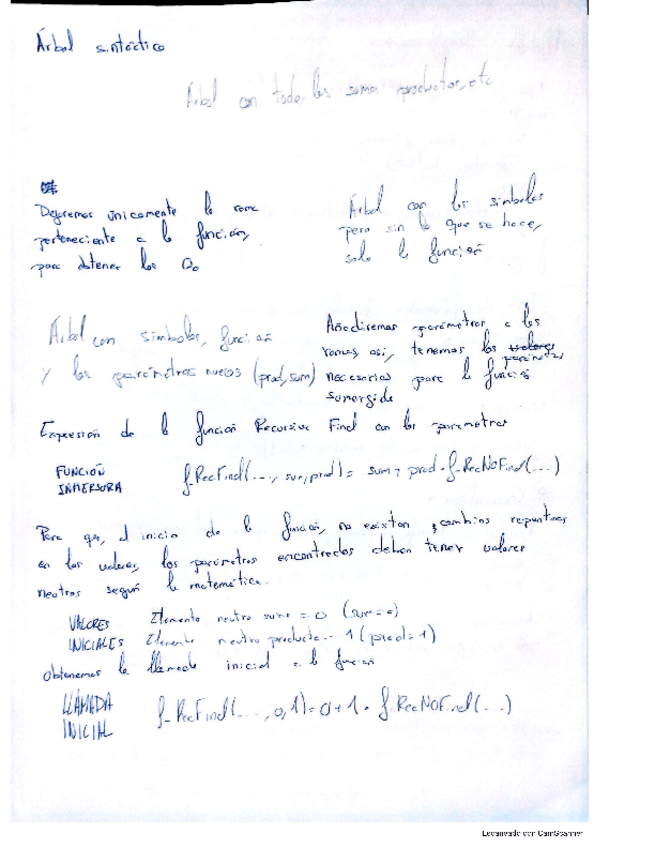 Árbol sintáctico
Árbol con todo, las sumas productos, etc
Dejaremos únicamente la rama
perteneciente a la función,
para obtener los
Árbol con los símbolos
pero sin lo que se hace,
solo la función
Árbol con símbolos, función
y los parámetros nuevos (prod, sum)
Añadiremos parámetros a las
ramas, así, tenemos los valores parámetros
necesarios para la función
sumergida
Expresión de la función Recursiva Final con los parámetros
FUNCIÓN
INMERSORA
f_RecFinal(..., sum, prod) = sum + prod · f_RecNoFinal(...)
Para que, al inicio de la función, no existan cambios repentinos
en los valores, los parámetros encontrados deben tener valores
neutros según la matemática.
VALORES
INICIALES
Elemento neutro suma = 0 (sum=0)
Elemento neutro producto = 1 (prod=1)
Obtenemos la llamada inicial a la función
LLAMADA
INICIAL
f_RecFinal(..., 0, 1) = 0 + 1 · f_RecNoFinal(...)
Escaneado con CamScanner